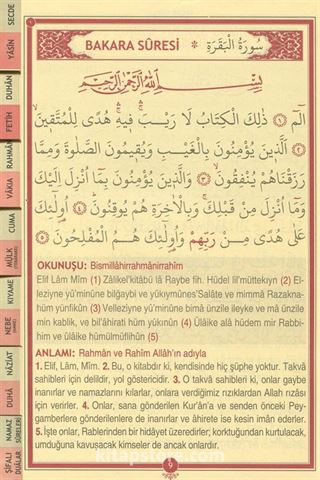 BAKARA SÛRESİ * سُورَةُ الْبَقَرَةِ
بِسْمِ اللّٰهِ الرَّحْمٰنِ الرَّحِيمِ
الٓمٓ ﴿١﴾ ذٰلِكَ الْكِتَابُ لَا رَيْبَ فِيهِ هُدًى لِلْمُتَّقِينَ
﴿٢﴾ اَلَّذِينَ يُؤْمِنُونَ بِالْغَيْبِ وَيُقِيمُونَ الصَّلٰوةَ وَمِمَّا
رَزَقْنَاهُمْ يُنْفِقُونَ ﴿٣﴾ وَالَّذِينَ يُؤْمِنُونَ بِمَٓا اُنْزِلَ اِلَيْكَ
وَمَٓا اُنْزِلَ مِنْ قَبْلِكَ وَبِالْاٰخِرَةِ هُمْ يُوقِنُونَ ﴿٤﴾ اُولٰٓئِكَ
عَلٰى هُدًى مِنْ رَبِّهِمْ وَاُولٰٓئِكَ هُمُ الْمُفْلِحُونَ ﴿٥﴾
OKUNUŞU: Bismillâhirrahmânirrahîm
Elif Lâm Mîm (1) Zâlikel'kitâbü lâ Raybe fih. Hüdel lil'müttekıyn (2) El-
leziyne yü'minûne bilğaybi ve yükıymûnes'Salâte ve mimmâ Razakna-
hüm yünfikûn (3) Velleziyne yü'minûne bimâ ünzile ileyke ve mâ ünzile
min kablik, ve bil'âhirati hüm yûkınûn (4) Ülâike alâ hüdem mir Rabbi-
him ve ülâike hümülmüflihûn (5)
ANLAMI: Rahmân ve Rahîm Allâh'ın adıyla
1. Elif, Lâm, Mîm. 2. Bu, o kitabdır ki, kendisinde hiç şüphe yoktur. Takvâ
sâhibleri için delildir, yol göstericidir. 3. O takvâ sâhibleri ki, onlar gaybe
inanırlar ve namazlarını kılarlar, onlara verdiğimiz rızıklardan Allah rızâsı
için verirler. 4. Onlar, sana gönderilen Kur'ân'a ve senden önceki Pey-
gamberlere gönderilenlere de inanırlar ve âhirete ise kesin iman ederler.
5. İşte onlar, Rablerinden bir hidâyet üzeredirler; korktuğundan kurtulacak,
umduğuna kavuşacak kimseler de ancak onlardır.
9
SECDE
YÂSÎN
DUHÂN
FETİH
RAHMÂN
VÂKIA
CUMA
MÜLK
KIYAME
NEBE
NÂZİAT
DUHÂ
NAMAZ
SÛRELERİ
ŞİFALI
DUALAR